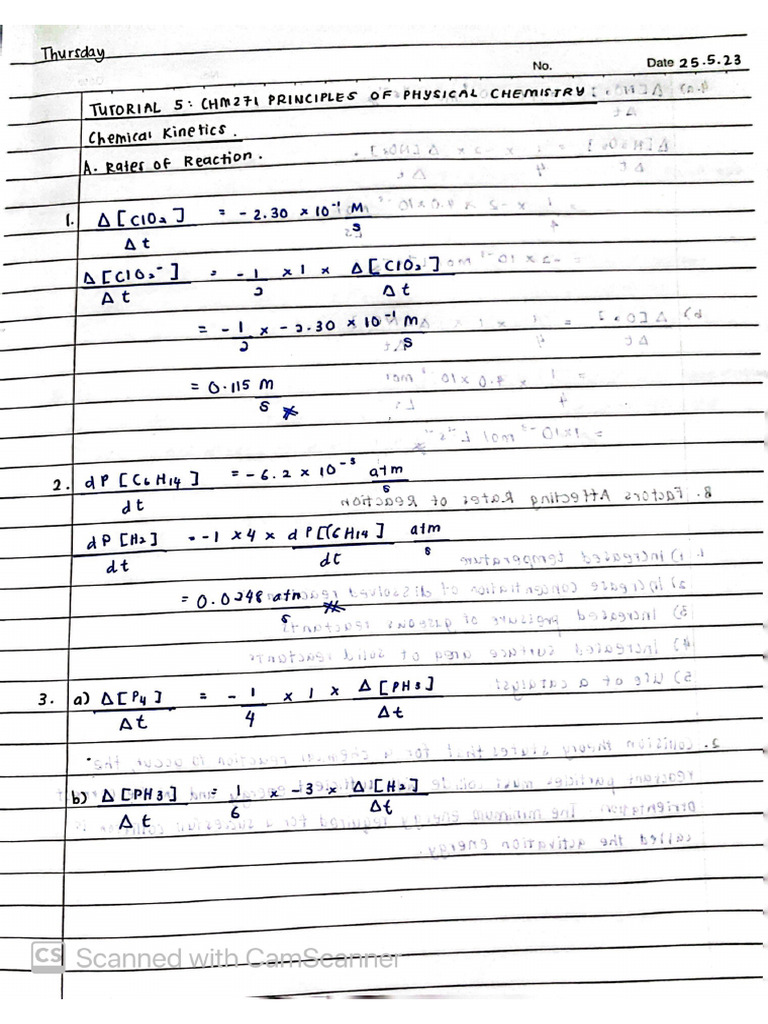 Thursday
No. Date 25.5.23
TUTORIAL 5: CHM271 PRINCIPLES OF PHYSICAL CHEMISTRY:
Chemical Kinetics.
A. Rates of Reaction.
1. Δ[ClO2] = -2.30 × 10⁻¹ M
Δt s
Δ[ClO2⁻] = -1 × 1 × Δ[ClO2]
Δt 2 Δt
= -1 × -2.30 × 10⁻¹ M
2 s
= 0.115 M
s
2. dP[C6H14] = -6.2 × 10⁻³ atm
dt s
dP[H2] = -1 × 4 × dP[C6H14] atm
dt dt s
= 0.0248 atm
s
3. a) Δ[P4] = -1 × 1 × Δ[PH3]
Δt 4 Δt
b) Δ[PH3] = 1 × -3 × Δ[H2]
Δt 6 Δt
CS Scanned with CamScanner